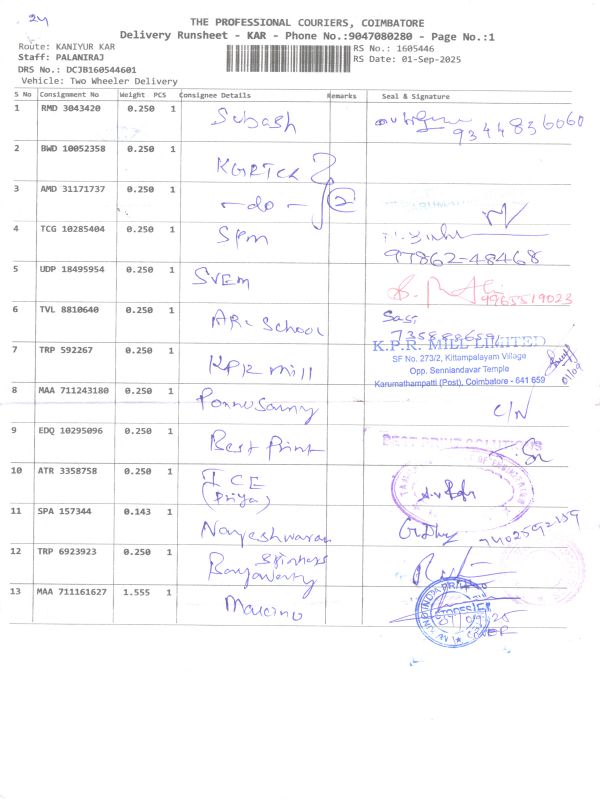 24
THE PROFESSIONAL COURIERS, COIMBATORE
Delivery Runsheet - KAR - Phone No.:9047080280 - Page No.:1
Route: KANIYUR KAR
RS No.: 1605446
Staff: PALANIRAJ
RS Date: 01-Sep-2025
DRS No.: DCJB160544601
Vehicle: Two Wheeler Delivery
S No Consignment No Weight PCS Consignee Details Remarks Seal & Signature
1 RMD 3043420 0.250 1 Subash 9344836060
2 BWD 10052358 0.250 1
3 AMD 31171737 0.250 1 - do - 2
4 TCG 10285404 0.250 1 SPM
97862-48468
5 UDP 18495954 0.250 1 SVEM 9965519023
6 TVL 8810640 0.250 1 ARC School Sasi
7 TRP 592267 0.250 1 KPR mill
K.P.R. MILL LIMITED
SF No. 273/2, Kittampalayam Village
Opp. Senniandavar Temple
Karumathampatti (Post), Coimbatore - 641 659
01/09
8 MAA 711243180 0.250 1 Ponnusamy C/N
9 EDQ 10295096 0.250 1 Best Print
BEST PRINT SOLUTIONS
10 ATR 3358758 0.250 1 ICE
(Priya)
11 SPA 157344 0.143 1 Nageshwaran 7402592159
12 TRP 6923923 0.250 1 Spinners
13 MAA 711161627 1.555 1